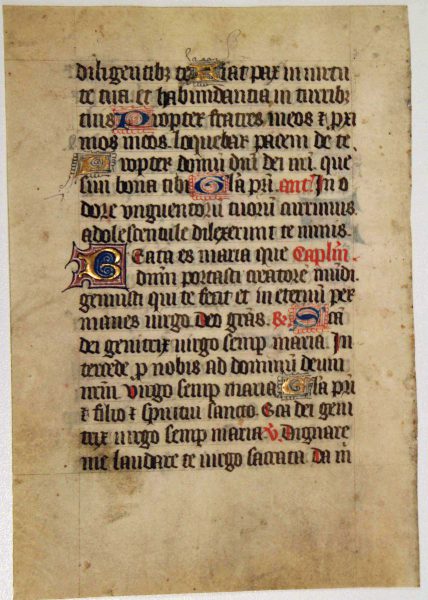 diligentibz te Fiat pax in uirtu
te tua. et habundantia in turribz
tuis Propter fratres meos ⁊ pxi
mos meos. loquebar pacem de te.
Propter domū dn̄i dei n̄ri. que
siui bona tibi Gl̄a pr̄i. ant̄. In o
dore unguentorū tuorū currimus.
adolescentule dilexerunt te nimis.
Beata es maria que Caplm̄.
dn̄m portasti creatorē mūdi
genuisti qui te fecit et in eternū per
manes uirgo. Deo grās. R Sc̄a
dei genitrix uirgo semp maria. In
tercede p nobis ad dominū deum
nr̄m. Uirgo semp maria Gl̄a pr̄i
⁊ filio ⁊ spiritui sancto. Sc̄a dei geni
trix uirgo semp maria V. Dignare
me laudare te uirgo sacrata. Da m̄